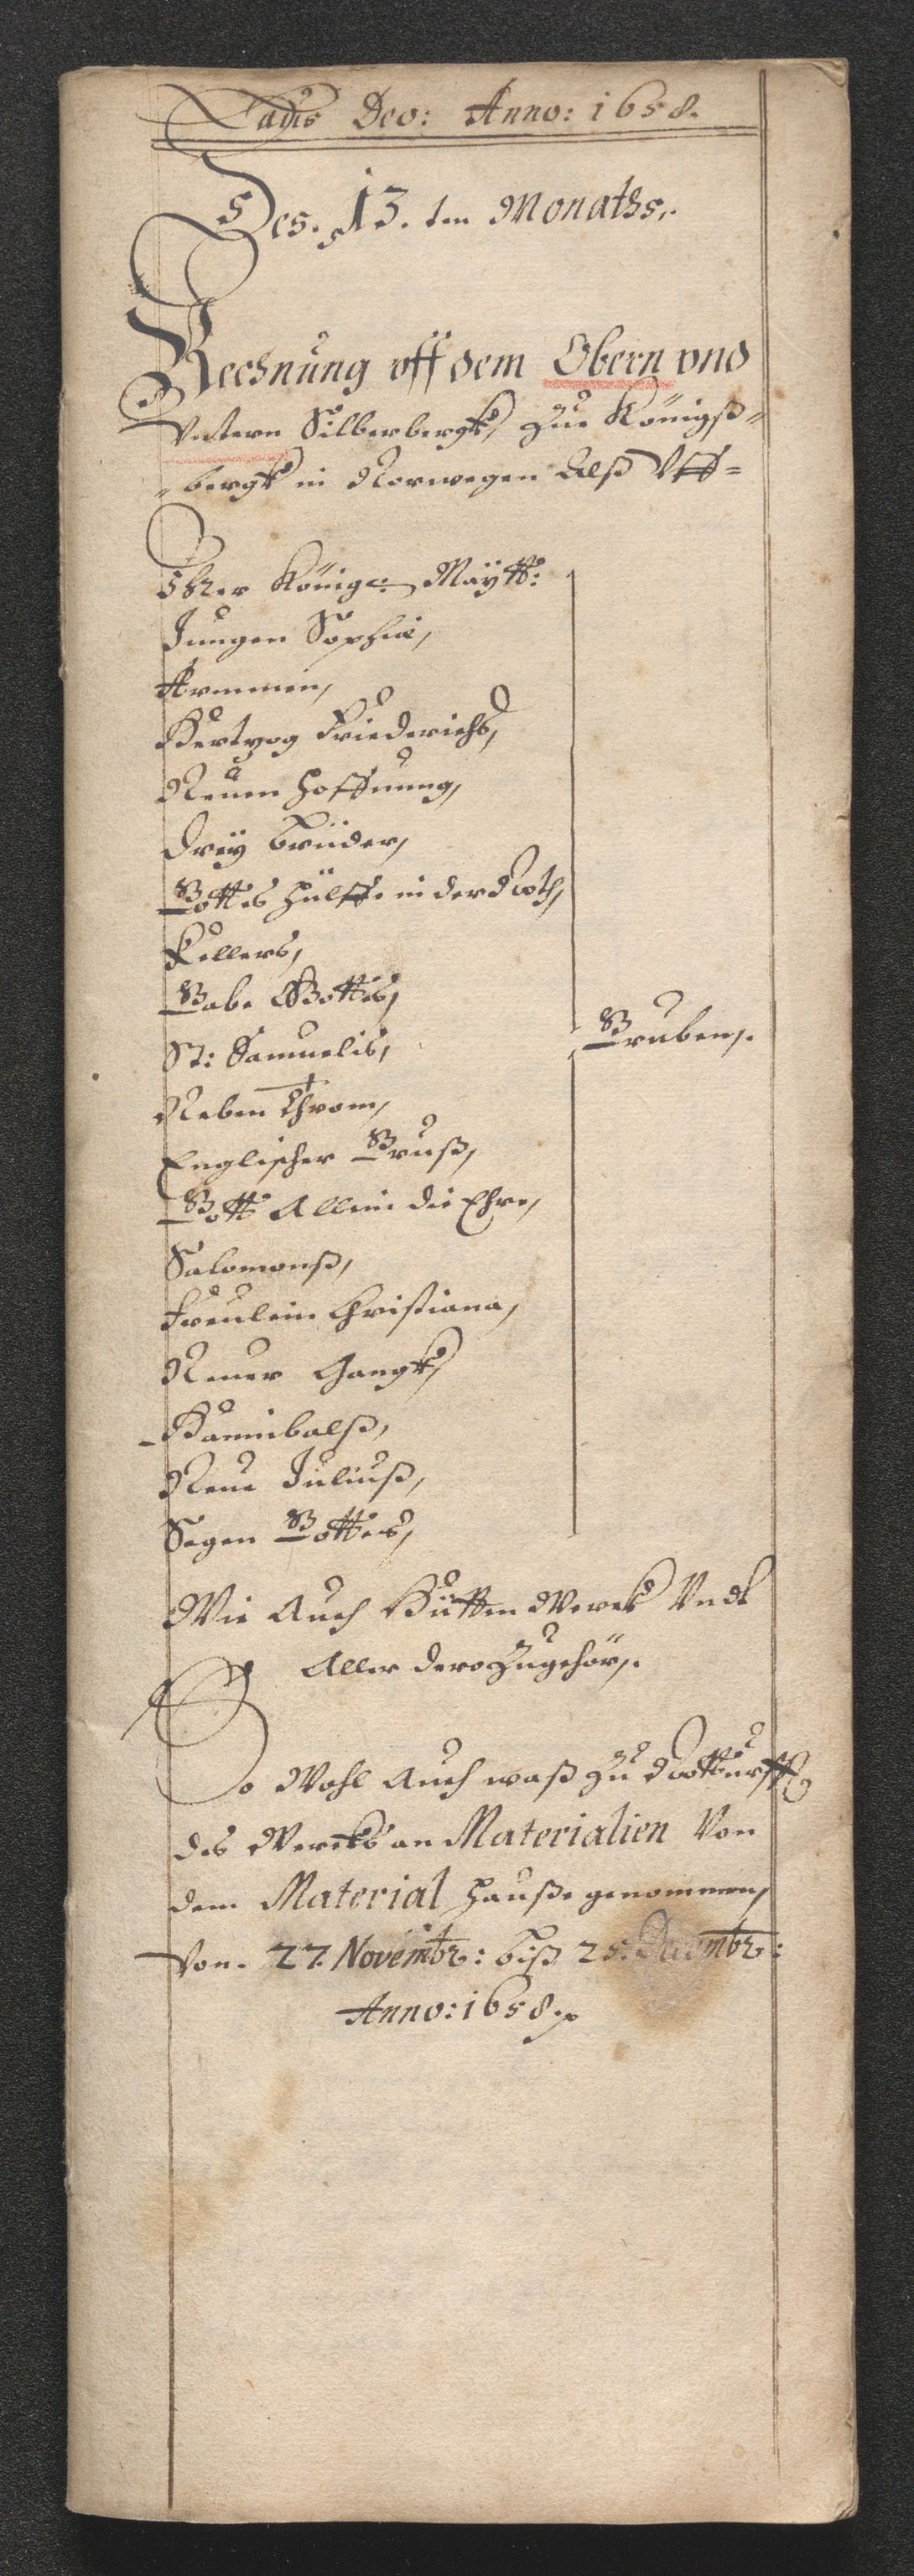 Laus Deo: Anno: 1658.
Des. 13. ten Monaths,.
Rechnung vff dem Obern vnd
Vntern Silberbergk, Zue Königß-
-bergk in Norwegen Alß Vff-
Ihrer König: Mäytt:
Jungen Sophia,
Armmen,
Hertzog Friederichs,
Neuen Hoffnung,
Dreÿ Brüder,
Gottes Hülffe in der Noth,
Kellers,
Gabe Gottes,
St: Samuelis,
Gruben,.
Neben Throm,
Englischer Gruß,
Gott Allein die Ehre,
Salomonß,
Freulein Christiana,
Neuer Gangk,
Hannibalß,
Neue Juliuß,
Segen Gottes,
Wie Auch Hütten Werck Vndt
Aller dero Zugehör,.
So Wohl Auch waß Zu Notturfft
des Wercks an Materialien Von
dem Material Hauße genommen,
Von. 27. Novembr: biß 25. Decembr:
Anno: 1658.